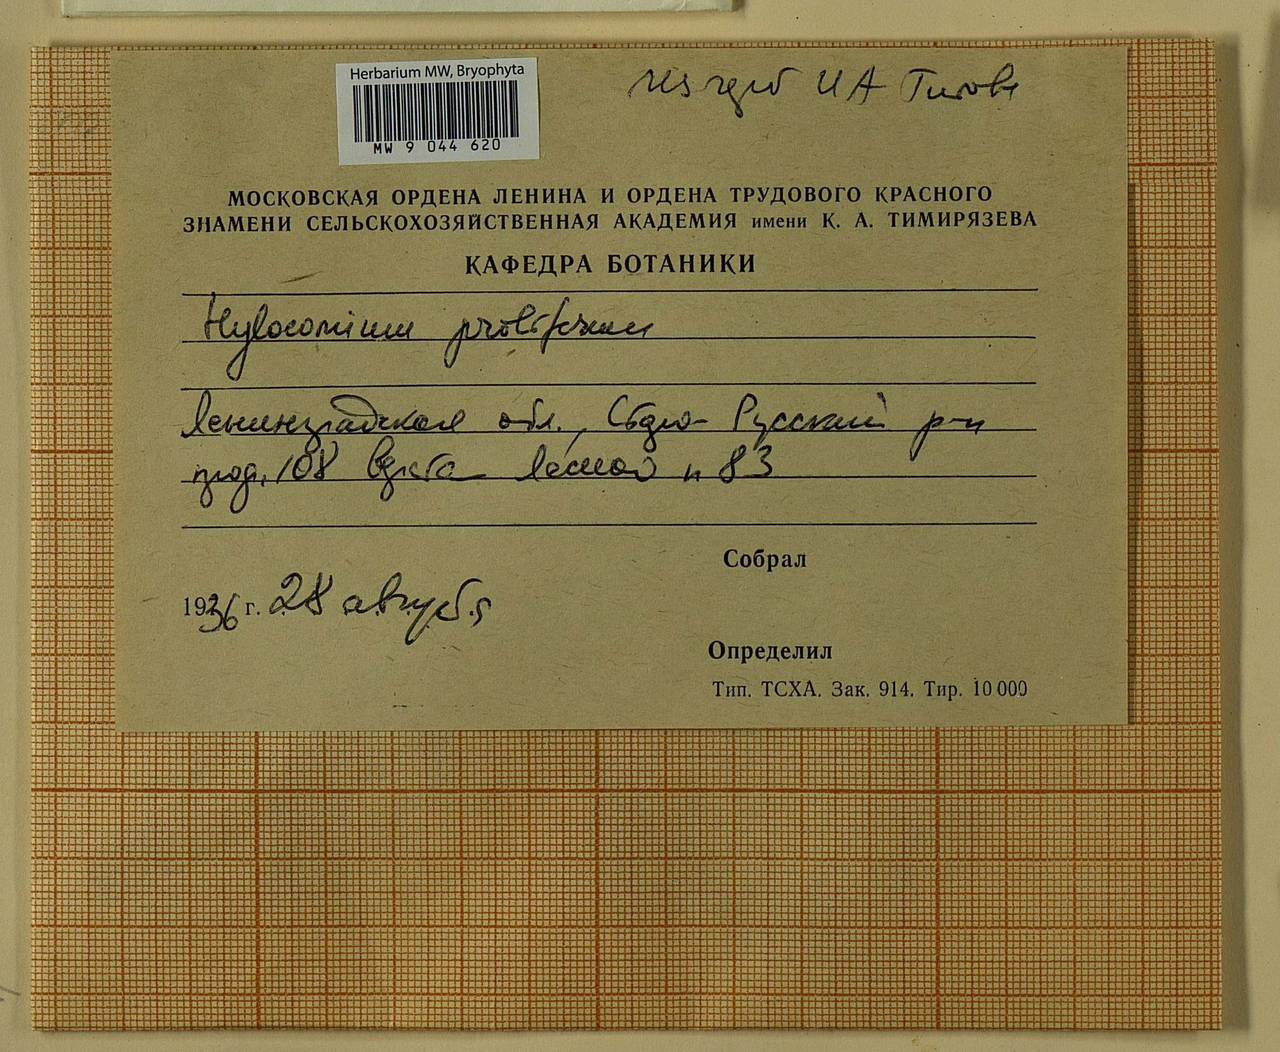 Herbarium MW, Bryophyta
MW 9 044 620
И А Титов
МОСКОВСКАЯ ОРДЕНА ЛЕНИНА И ОРДЕНА ТРУДОВОГО КРАСНОГО
ЗНАМЕНИ СЕЛЬСКОХОЗЯЙСТВЕННАЯ АКАДЕМИЯ имени К. А. ТИМИРЯЗЕВА
КАФЕДРА БОТАНИКИ
Hylocomium proliferum
Ленинградская обл., Русский р-н
108 83
Собрал
1936 г. 28 август
Определил
Тип. ТСХА. Зак. 914. Тир. 10 000